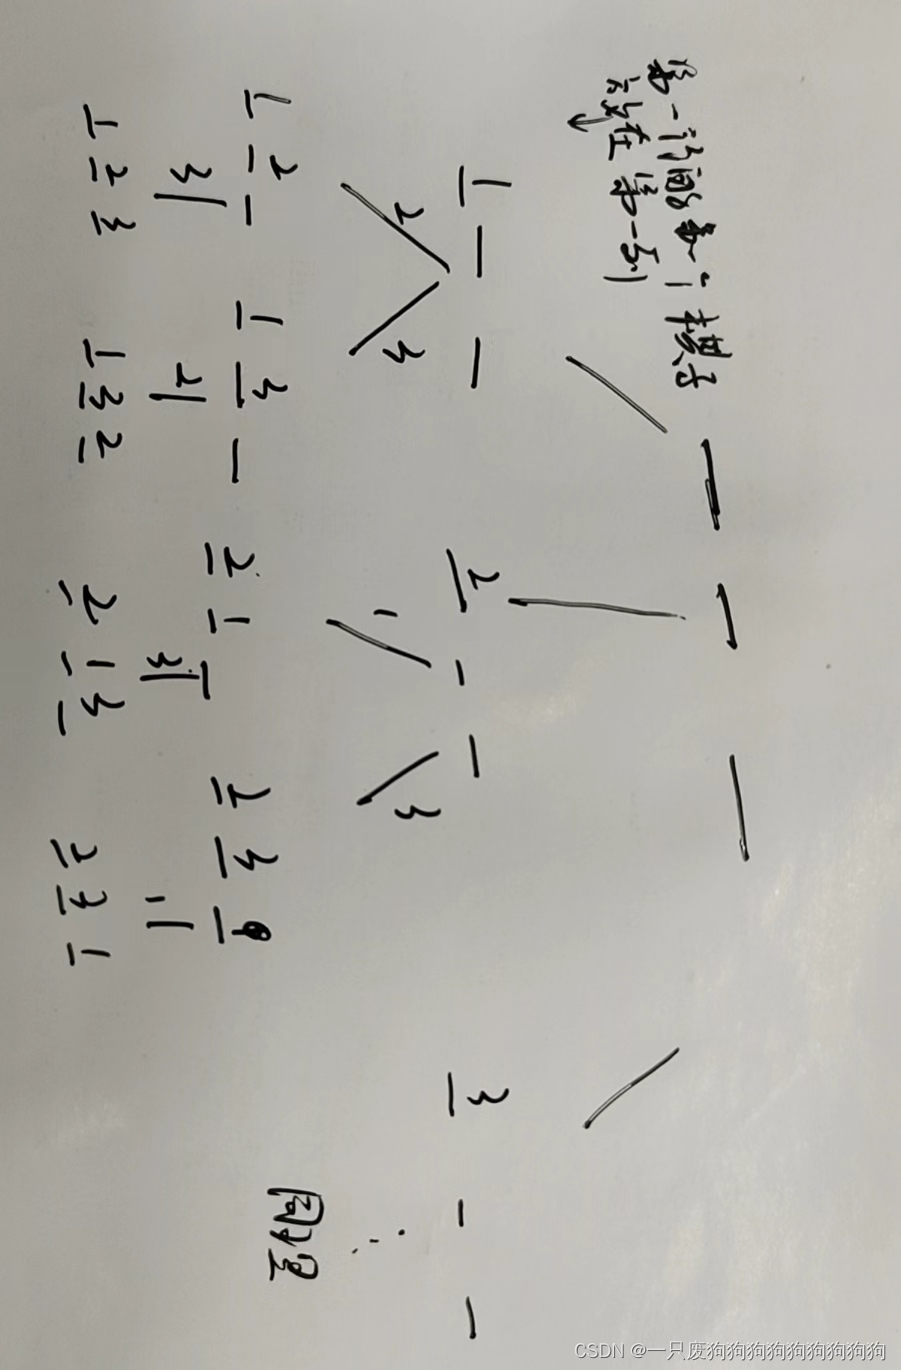 第一 个棋子
在第一列
1 2 3
2 3 1 3
1 2
1 3
2 1
2 3
同理
3 2 3 1
1 2 3
1 3 2
2 1 3
2 3 1
CSDN @一只废狗狗狗狗狗狗狗狗狗